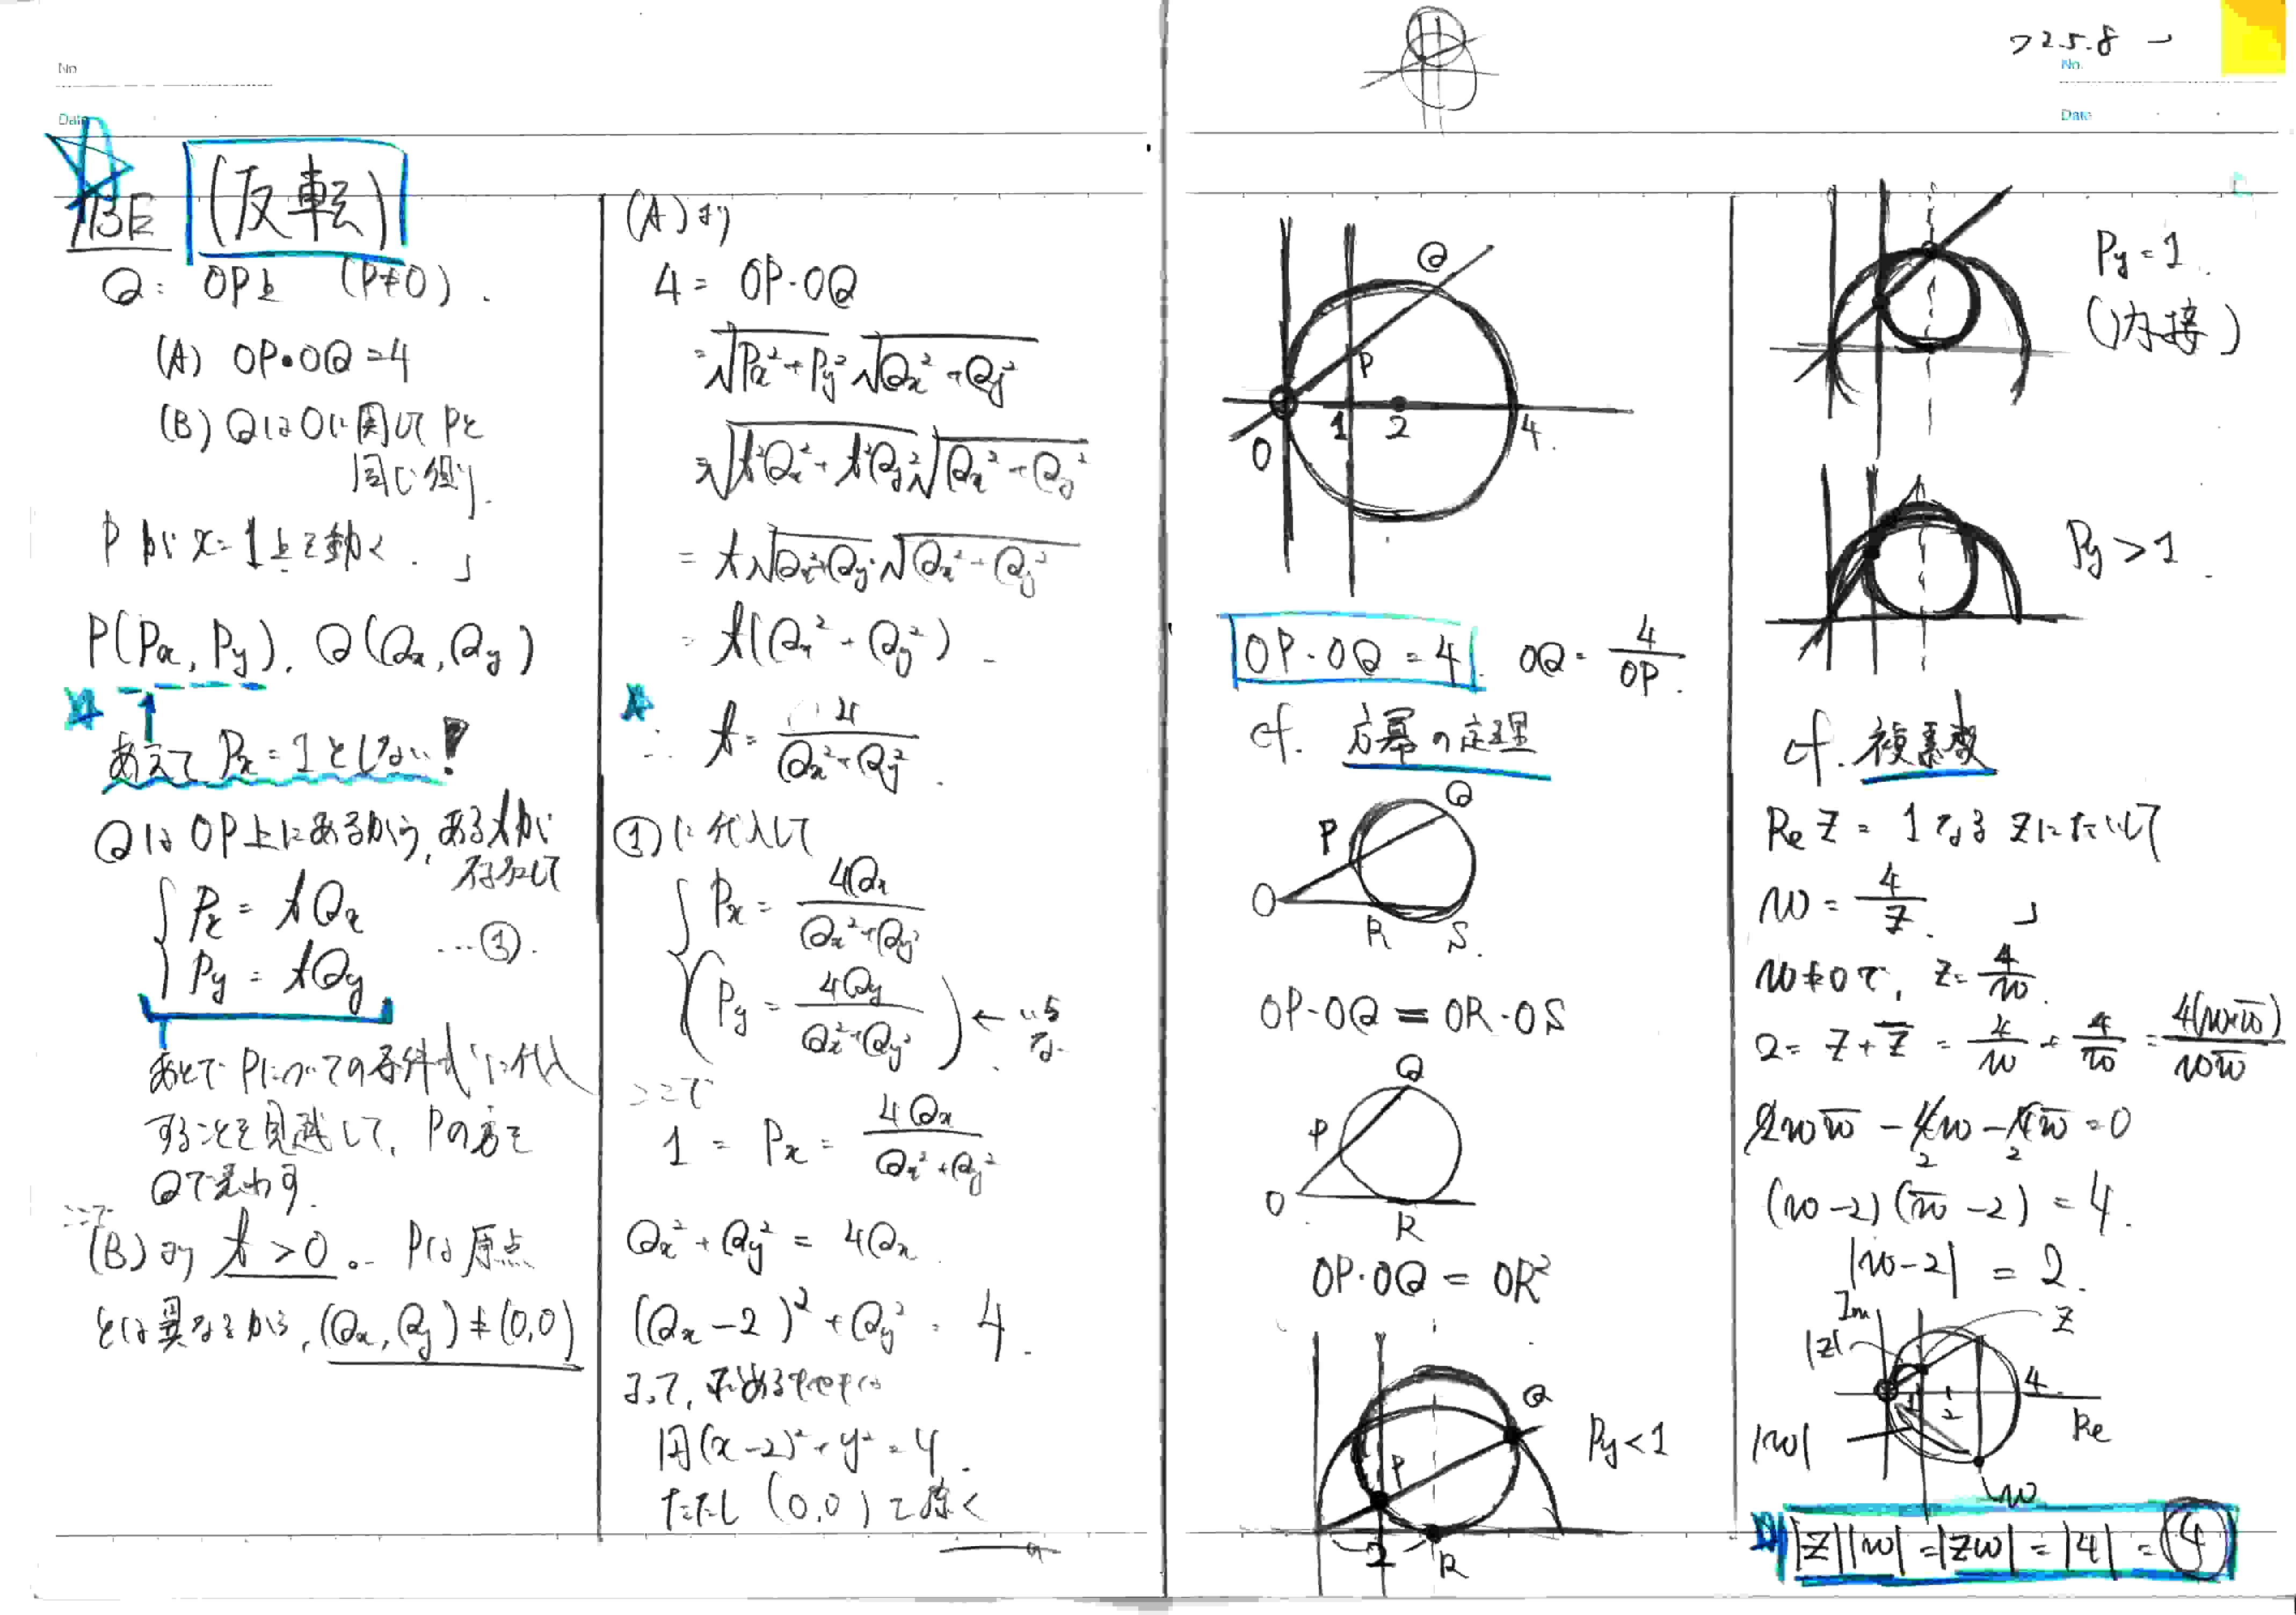 No
Date
(反転)
Q: OP上 (P≠O).
(A) OP・OQ=4
(B) QはOに関してPと
同じ側.
Pが x=1上を動く.」
P(Px, Py), Q(Qx, Qy)
あえて Px=1としない!
QはOP上にあるから, あるtが
存在して
Px = tQx
Py = tQy
…①.
あとでPについての条件式に代入
することを見越して, Pの方を
Qで表わす.
ここで
(B)より t>0. Pは原点
とは異なるから, (Qx, Qy)≠(0,0)
(A)より
4 = OP・OQ
=√Px²+Py² √Qx²+Qy²
=√t²Qx²+t²Qy² √Qx²+Qy²
= t√Qx²+Qy²・√Qx²+Qy²
= t(Qx²+Qy²).
∴ t = 4/(Qx²+Qy²).
①に代入して
Px = 4Qx/(Qx²+Qy²)
(Py = 4Qy/(Qx²+Qy²)) ← いら
ない.
ここで
1 = Px = 4Qx/(Qx²+Qy²)
Qx²+Qy² = 4Qx.
(Qx-2)²+Qy² = 4.
よって, 求めるキセキは
円(x-2)²+y²=4.
ただし (0,0)を除く
'25.5.8
No.
Date
Q
P
O
1
2
4
OP・OQ=4. OQ=4/OP.
cf. 方冪の定理
Q
P
O
R
S
OP・OQ = OR・OS
Q
P
O
R
OP・OQ = OR²
Q
P
Py<1
2
R
Py=1.
(内接)
Py>1.
cf. 複素数
Re z = 1なるzにたいして
w = 4/z.」
w≠0で, z=4/w.
2 = z+z̄ = 4/w + 4/w̄ = 4(w+w̄)/ww̄
2ww̄ - 4w - 4w̄ = 0
2
2
(w-2)(w̄-2) = 4.
|w-2| = 2.
Im
z
|z|
1
2
4
Re
|w|
w
|z||w|=|zw|=|4|=④